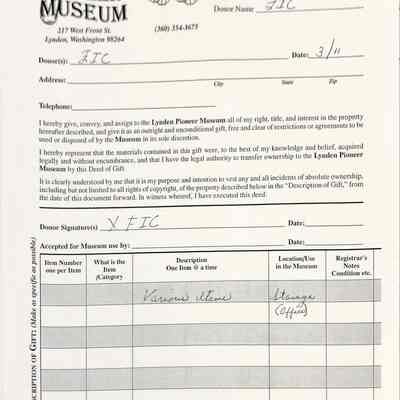 MUSEUM
217 West Front St.
Lynden, Washington 98264
(360) 354-3675
Donor Name FIC
Donor(s): FIC Date: 3/11
Address:
City State Zip
Telephone:
I hereby give, convey, and assign to the Lynden Pioneer Museum all of my right, title, and interest in the property
hereafter described, and give it as an outright and unconditional gift, free and clear of restrictions or agreements to be
used or disposed of by the Museum in its sole discretion.
I hereby represent that the materials contained in this gift were, to the best of my knowledge and belief, acquired
legally and without encumbrance, and that I have the legal authority to transfer ownership to the Lynden Pioneer
Museum by this Deed of Gift.
It is clearly understood by me that it is my purpose and intention to vest any and all incidents of absolute ownership,
including but not limited to all rights of copyright, of the property described below in the "Description of Gift," from
the date of this document forward. In witness whereof, I have executed this deed.
Donor Signature(s) X FIC Date:
Accepted for Museum use by: Date:
SCRIPTION OF GIFT: (Make as specific as possible)
Item Number
one per Item
What is the
Item
/Category
Description
One Item @ a time
Location/Use
in the Museum
Registrar's
Notes
Condition etc.
Various items
Storage
(Office)